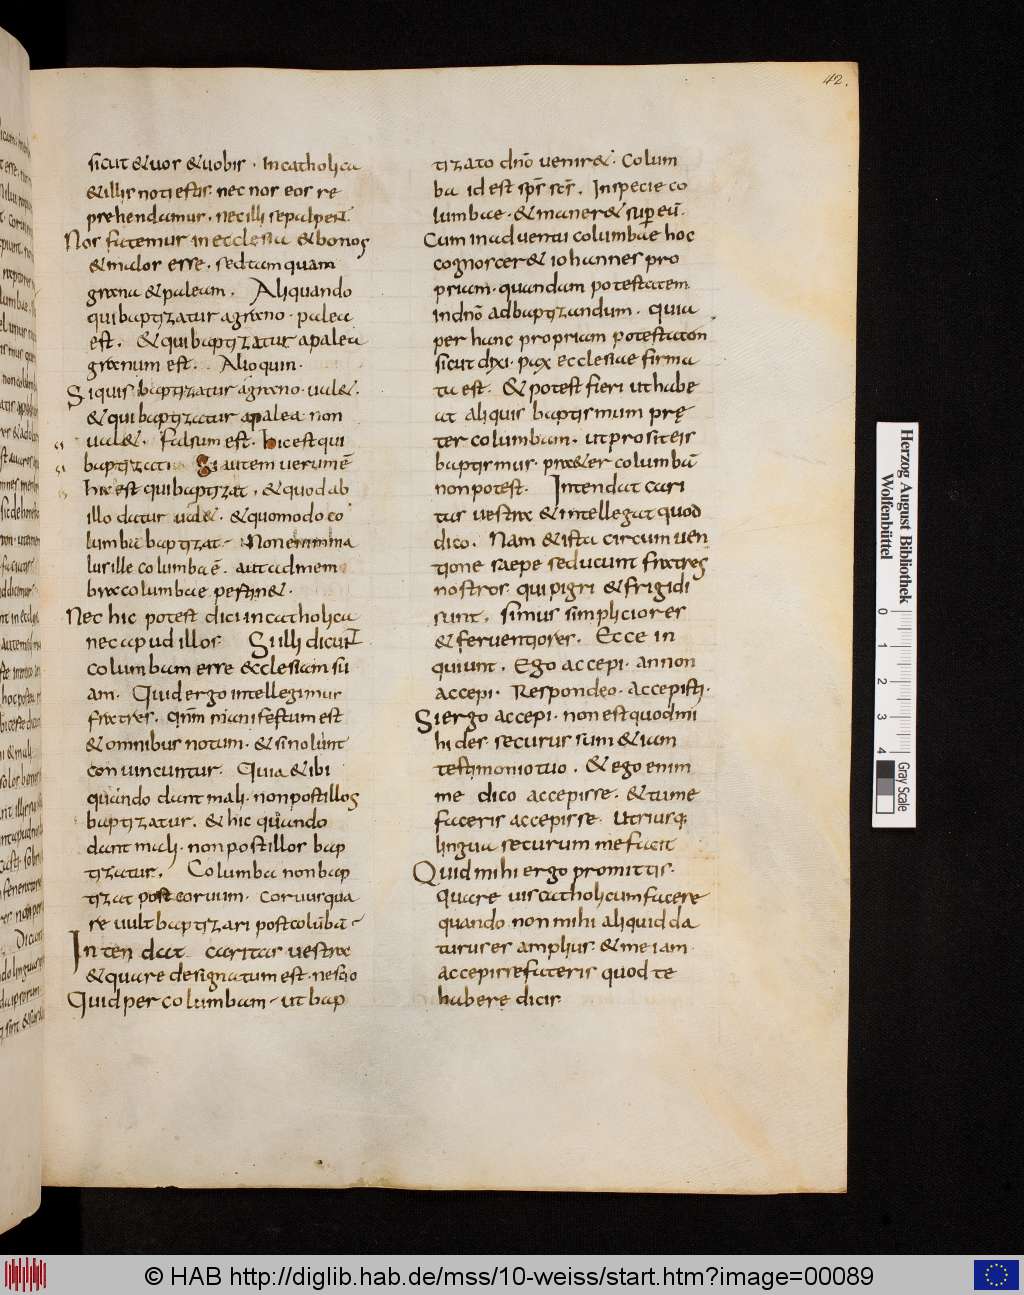 42.
sicut & uos & uobis . In catholica
& illis noti estis. nec nos eos re
prehendamus . nec illi se palpent.
Nos fatemur in ecclesia & bonos
& malos esse . sed tamquam
grana & paleam . Aliquando
qui baptizatur a grano . palea
est . & qui baptizatur a palea
granum est . Alioquin .
Si quis baptizatur a grano . ual& .
& qui baptizatur a palea non
ual& . falsum est . hic est qui
baptizat. Si autem uerum ē
hic est qui baptizat . & quod ab
illo datur ual& . & quomodo co
lumba baptizat Non enim ma
lus ille columba ē . aut ad mem
bra columbae pertin& .
Nec hic potest dici in catholica
nec apud illos Si illi dicunt
columbam esse ecclesiam su
am . Quid ergo intellegimus
fratres . qnm manifestum est
& omnibus notum . & si nolunt
conuincuntur . Quia & ibi
quando dant mali . non post illos
baptizatur . & hic quando
dant mali . non post illos bap
tizatur . Columba non bap
tizat post coruum . Coruus qua
re uult baptizari post colūbā
Intendat caritas uestra
& quare designatum est . nescio
Quid per columbam ut bap
tizato dnō uenir& . Colum
ba id est sps scs . In specie co
lumbae . & maner& super eū .
Cum in aduentu columbae hoc
cognoscer& iohannes pro
priam . quandam potestatem
in dnō ad baptizandum . quia
per hanc propriam potestatem
sicut dixi . pax ecclesiae firma
ta est . & potest fieri ut habe
at aliquis baptismum prę
ter columbam . ut prosit eis
baptismus . praeter columbā
non potest . Intendat cari
tas uestra & intellegat quod
dico . Nam & ista circumuen
tione saepe seducunt fratres
nostros . qui pigri & frigidi
sunt . simus simpliciores
& feruentiores . Ecce in
quiunt . Ego accepi . an non
accepi . Respondeo . accepisti .
Si ergo accepi . non est quod mi
hi des . securus sum & iam
testimonio tuo . & ego enim
me dico accepisse . & tu me
fateris accepisse . Utriusq;
lingua securum me facit
Quid mihi ergo promittis .
Quare uis catholicum facere
quando non mihi aliquid da
turus es amplius & me iam
accepisse fateris quod te
habere dicis
Herzog August Bibliothek
Wolfenbüttel
0
1
2
3
4
Gray Scale
© HAB http://diglib.hab.de/mss/10-weiss/start.htm?image=00089